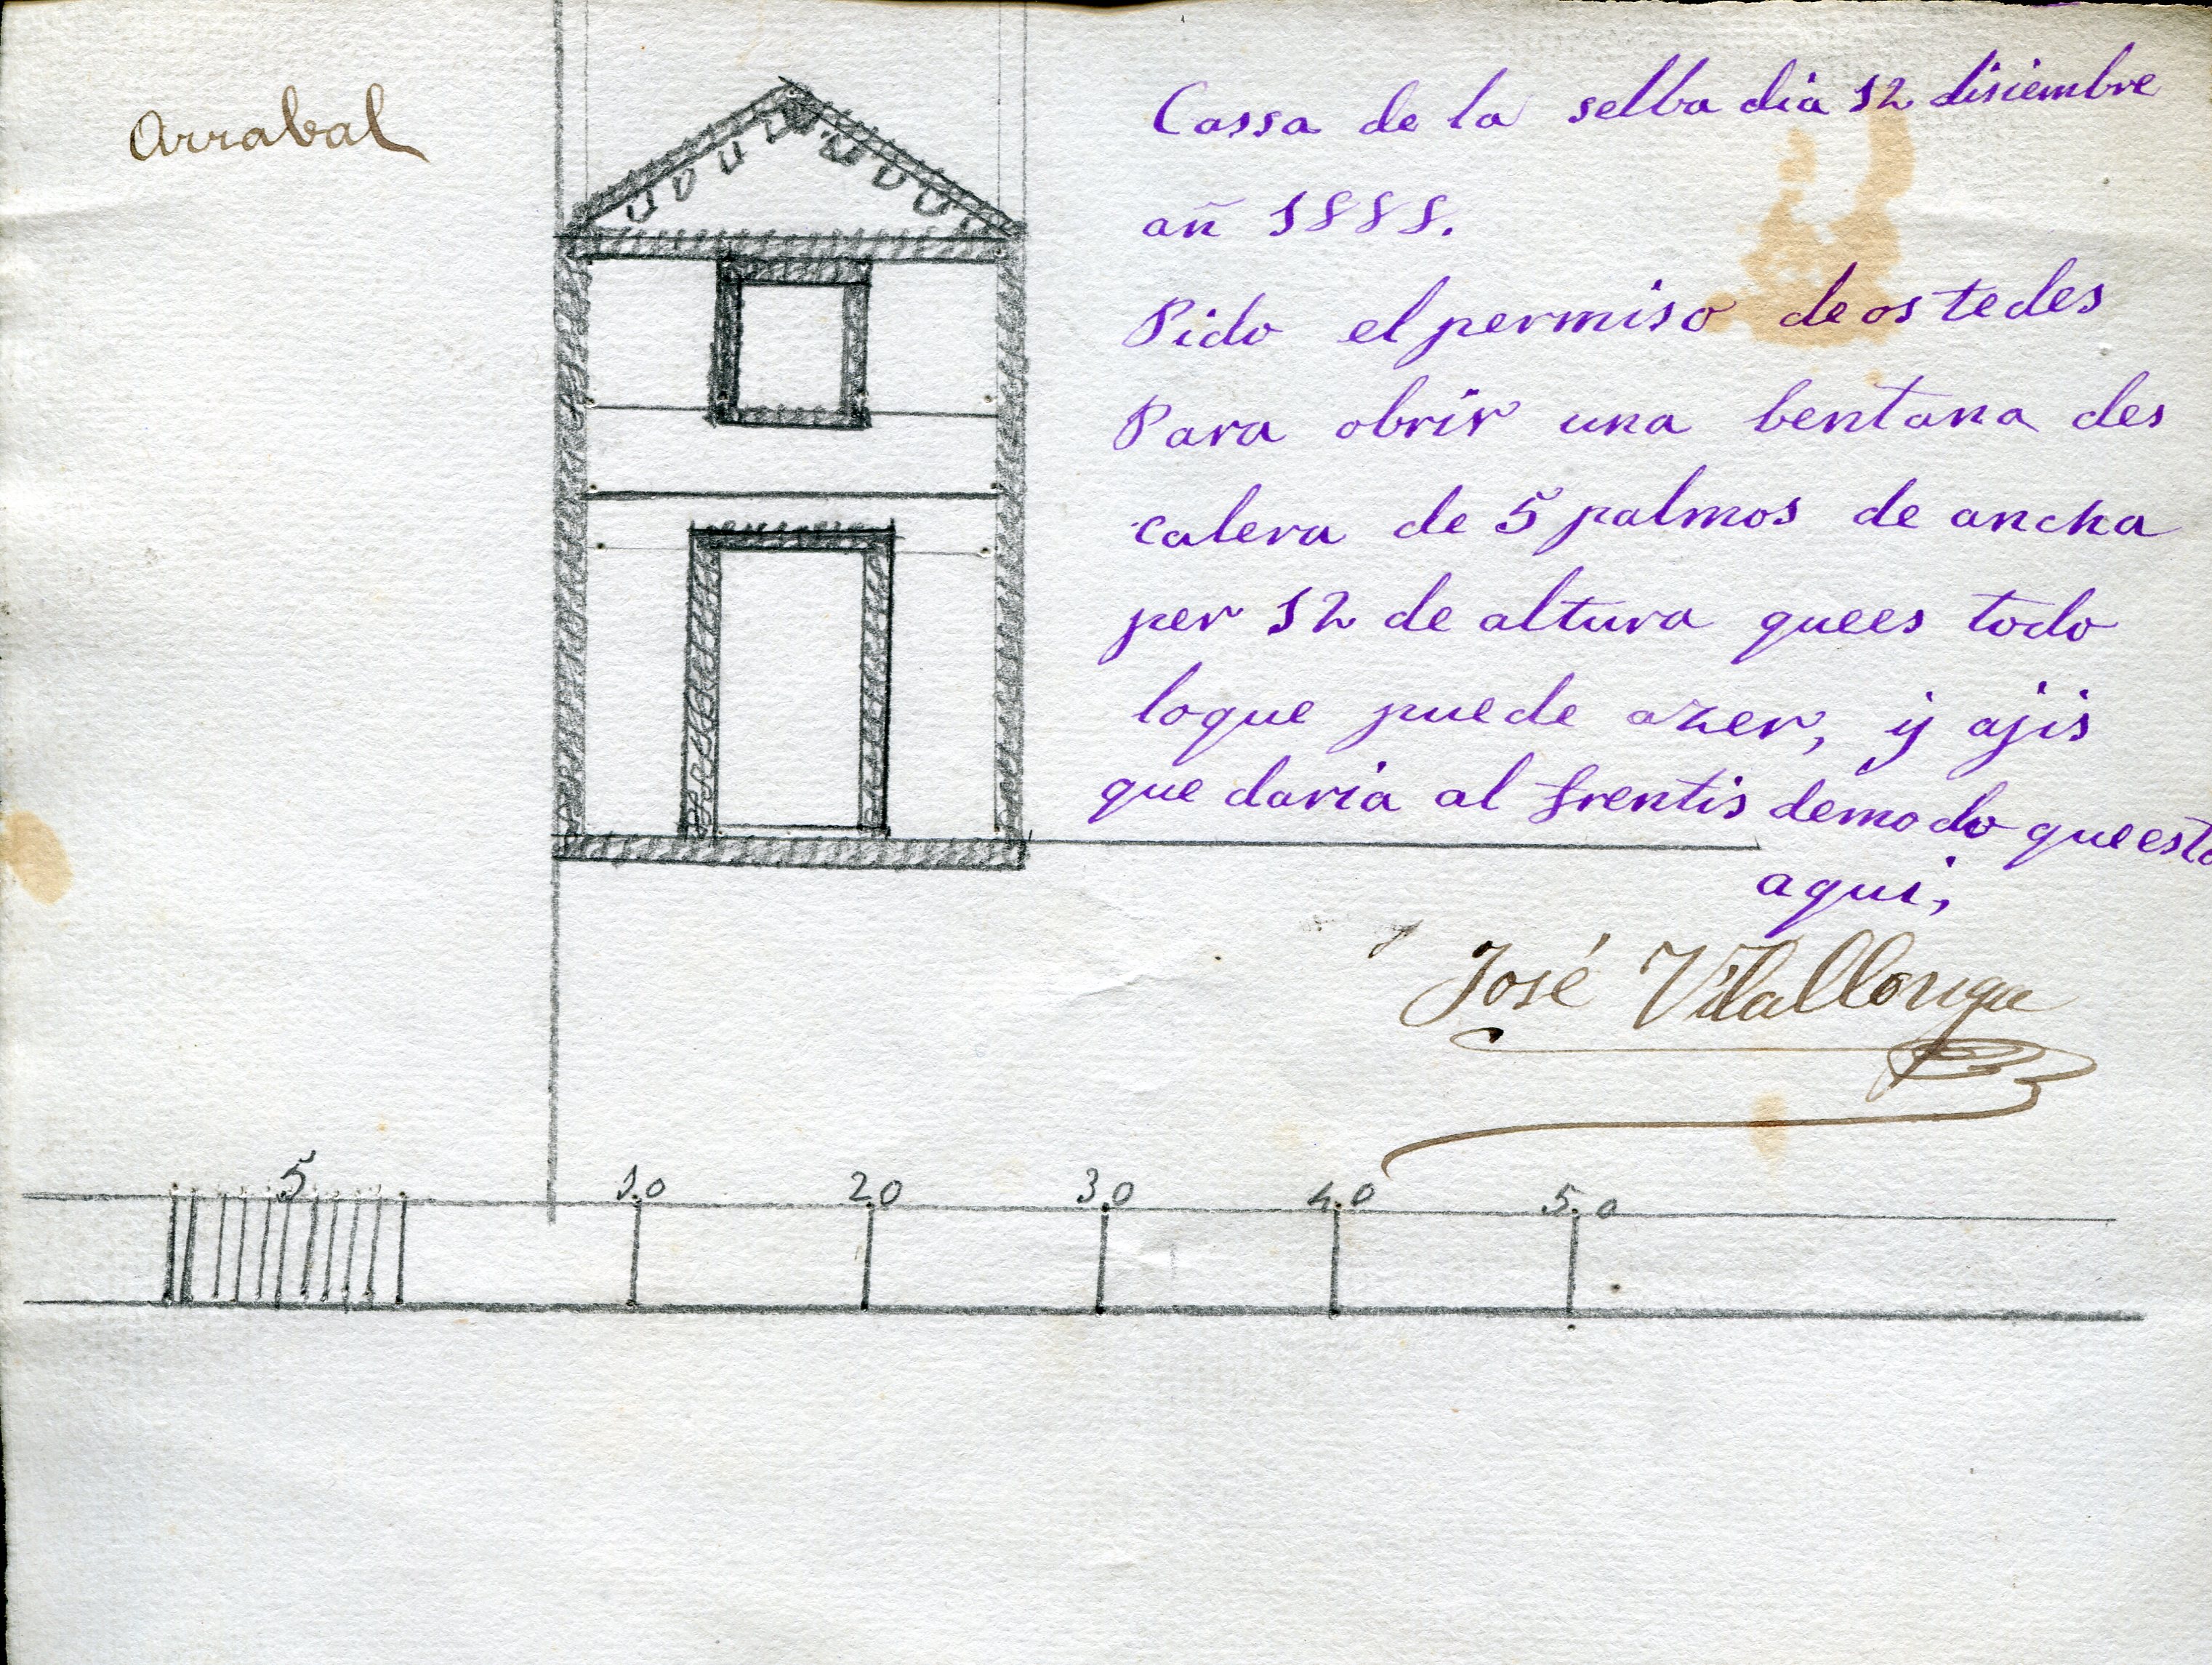 Arrabal
Cassa de la selba dia 12 disiembre
añ 1888.
Pido el permiso de os tedes
Para obrir una bentana des
calera de 5 palmos de ancha
per 12 de altura quees todo
loque puede azer, y ajis
que daria al frentis demodo queesta
aqui,
José Vilallonga
5 10 20 30 40 50